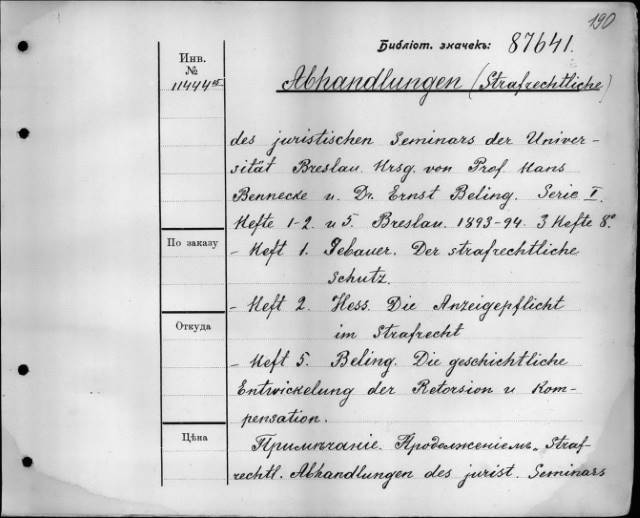 190
Библіот. значекъ: 87641.
Инв.
№
11444
Abhandlungen (Strafrechtliche)
des juristischen Seminars der Univer-
sität Breslau. Hrsg. von Prof. Hans
Bennecke u. Dr. Ernst Beling. Serie I.
Hefte 1-2. u. 5. Breslau. 1893-94. 3 Hefte 8º
По заказу
- Heft 1. Gebauer. Der strafrechtliche
Schutz.
- Heft 2. Hess. Die Anzeigepflicht
im Strafrecht
Откуда
- Heft 5. Beling. Die geschichtliche
Entwickelung der Retorsion u. Kom-
pensation.
Цѣна
Примѣчаніе. Продолженіемъ „Straf
rechtl. Abhandlungen des jurist. Seminars